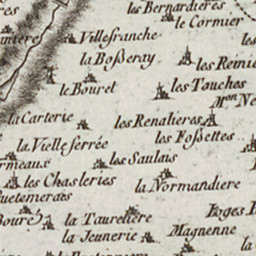 les Bernardieres
le Cormier
Villefranche
la Bosseray
les Reinie
le Bouret
les Touches
Mon Ne
la Carterie
les Renalieres
la Vielle ferrée
les Fossettes
rmeaux
les Saulais
les Chasleries
la Normandiere
uetemeraes
Boure
la Taureliere
Loges
la Jeunerie
Magnenne
la